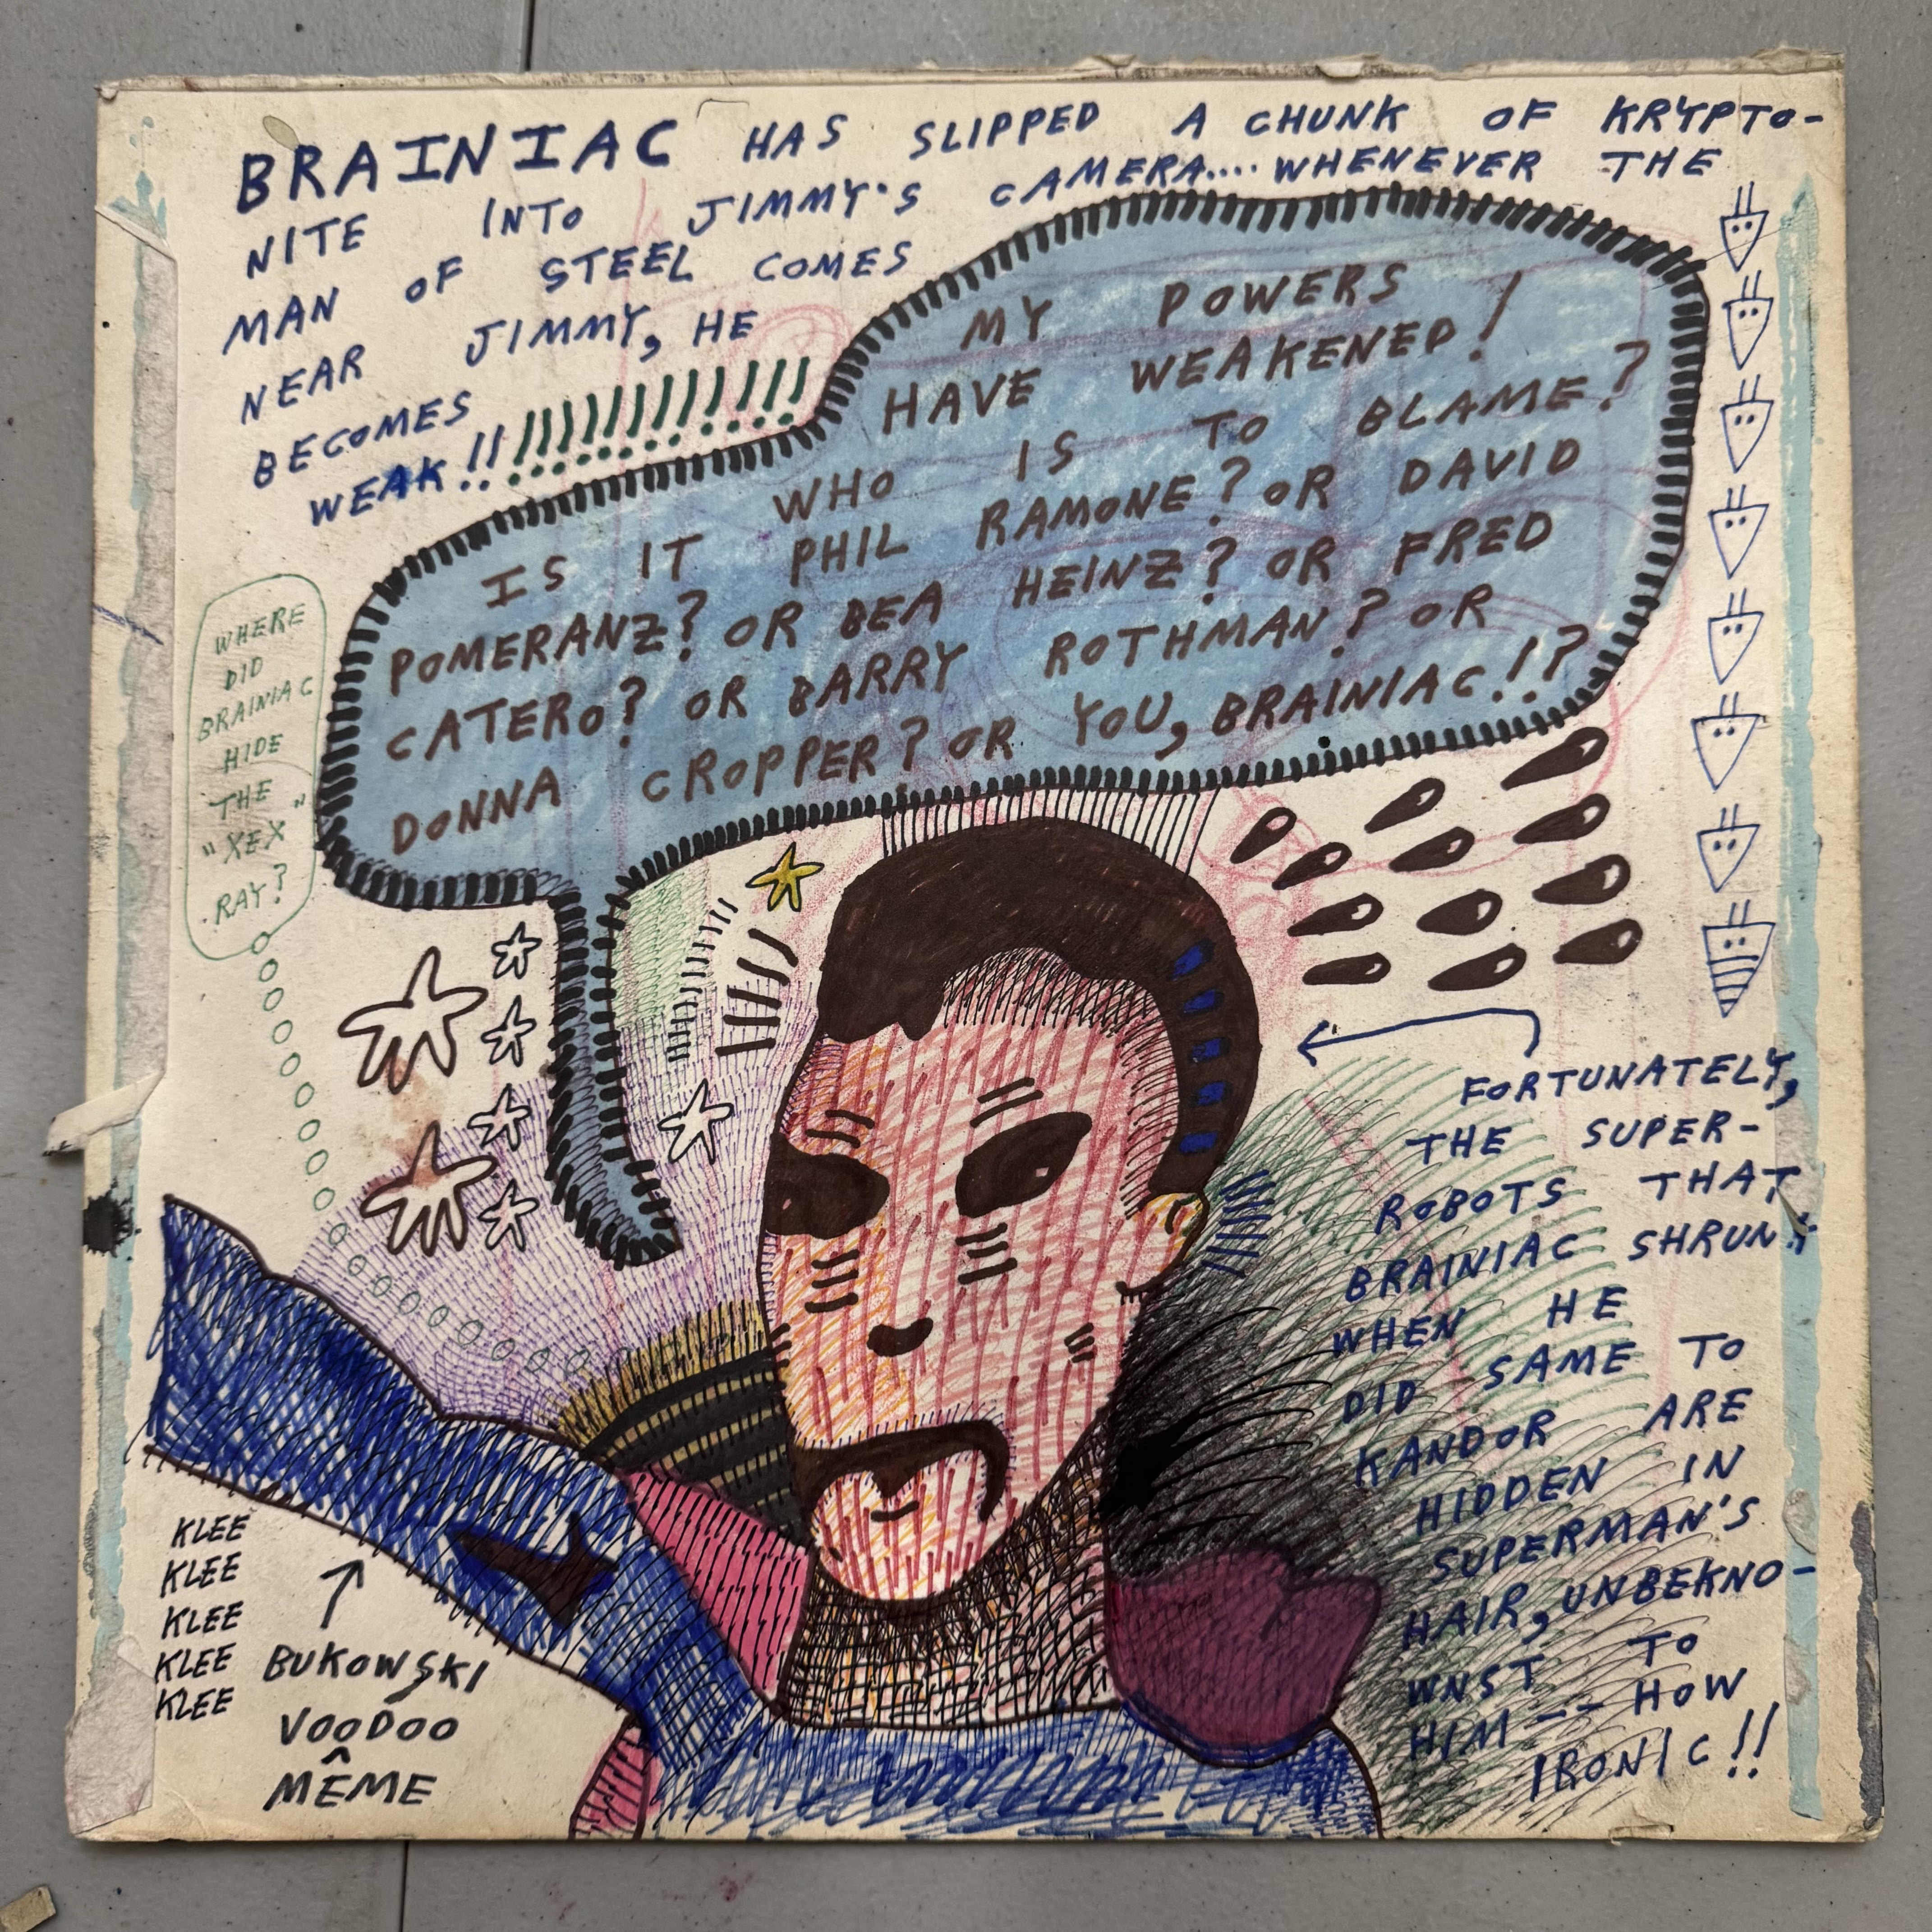 BRAINIAC HAS SLIPPED A CHUNK OF KRYPTO-
NITE INTO JIMMY'S CAMERA.... WHENEVER THE
MAN OF STEEL COMES
NEAR JIMMY, HE
BECOMES
WEAK!!!!!!!!!!!!!!
MY POWERS
HAVE WEAKENED!
WHO IS TO BLAME?
IS IT PHIL RAMONE? OR DAVID
POMERANZ? OR BEA HEINZ? OR FRED
CATERO? OR BARRY ROTHMAN? OR
DONNA CROPPER? OR YOU, BRAINIAC!!?
WHERE
DID
BRAINIAC
HIDE
THE
"XEX"
RAY?
FORTUNATELY,
THE SUPER-
ROBOTS THAT
BRAINIAC SHRUNK
WHEN HE
DID SAME TO
KANDOR ARE
HIDDEN IN
SUPERMAN'S
HAIR, UNBEKNO-
WNST TO
HIM -- HOW
IRONIC!!
KLEE
KLEE
KLEE
KLEE
KLEE
BUKOWSKI
VOODOO
MÊME